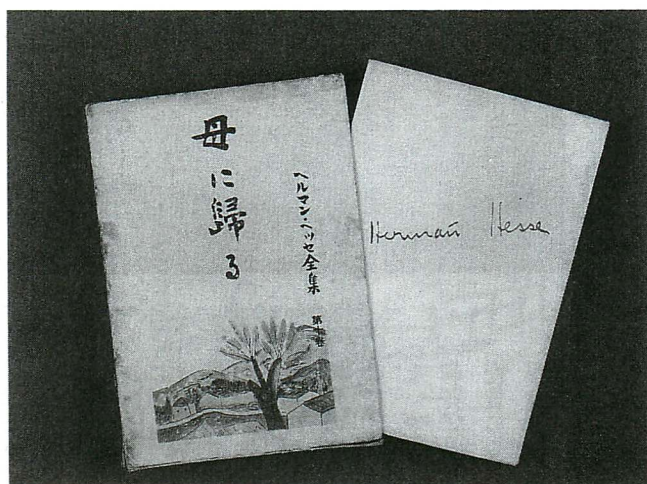 母に歸る
ヘルマン・ヘッセ全集
Hermann Hesse